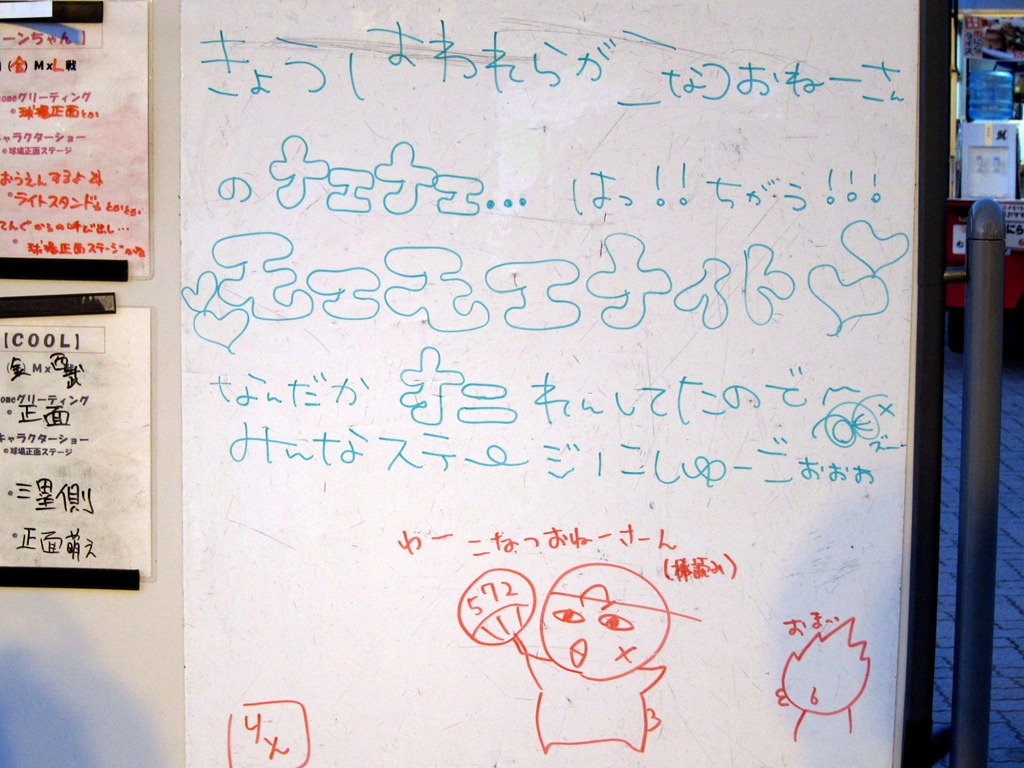 ーンちゃん】
(金) M×L戦
omeグリーティング
・球場正面とか
ャラクターショー
◎球場正面ステージ
おうえんするよ
・ライトスタンド
・球場正面ステージ
【COOL】
(金) M×西武
omeグリーティング
・正面
キャラクターショー
◎球場正面ステージ
・三塁側
・正面萌え
きょうしはわれらが こなつおねーさん
の チエナエ... はっ!! ちがう!!!
モエモエナイト
なんだか オニ れんしてたので〜
ズー
みんなステージにしゅーごおぉぉ
わー こなつおねーさーん
(棒読み)
572
11
おまい